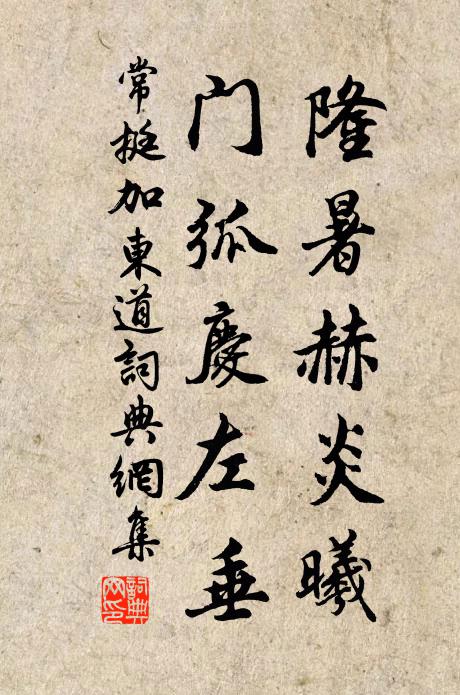 隆暑赫炎曦
门弧慶左垂
常挺加東道詞典網集
詞典
网印